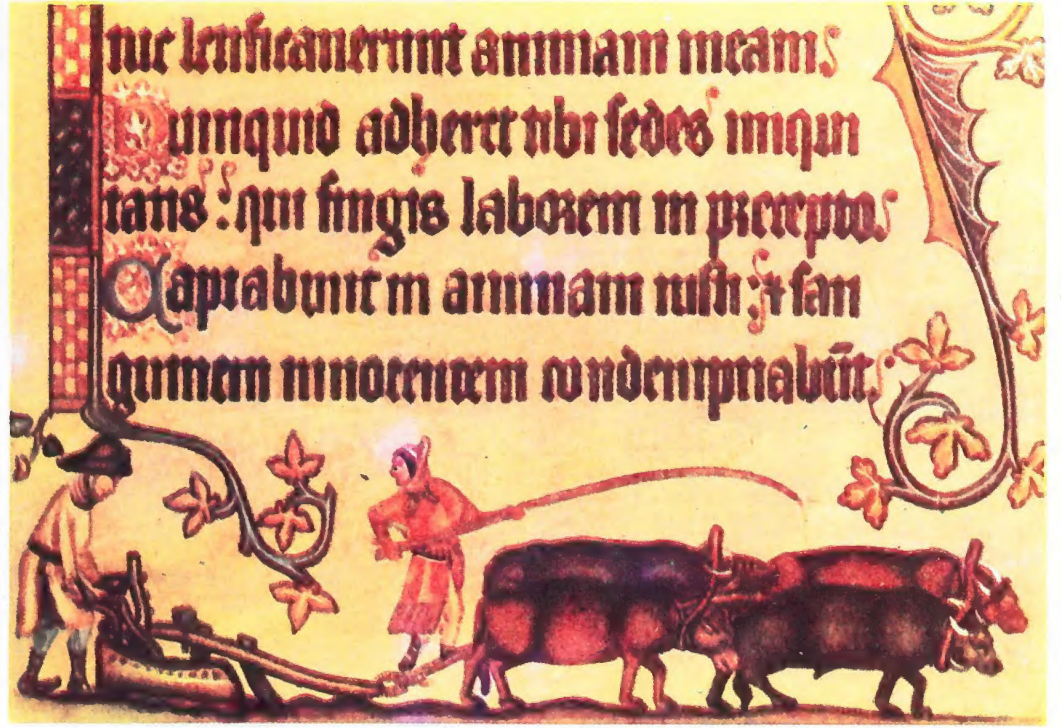 tue letificauerunt animam meam
Numquid adheret tibi sedes iniqui
tatis : qui fingis laborem in precepto.
Captabunt in animam iusti : & san
guinem innocentem condempnabūt.